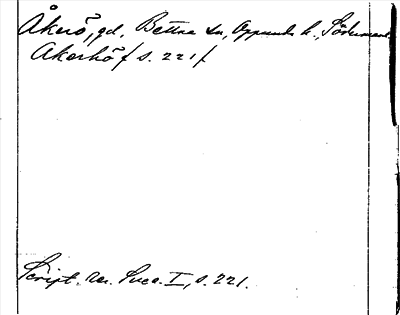 Åkerö, gd, Bettna sn, Oppunda h., Söderman
Akerhöf s. 221/
Script. rer. Suec. I, s. 221.